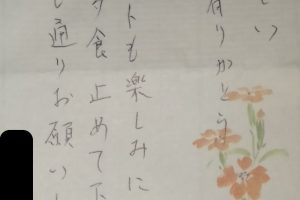 さい
有りがとう
トも楽しみに
夕食止めて下
通りお願いし